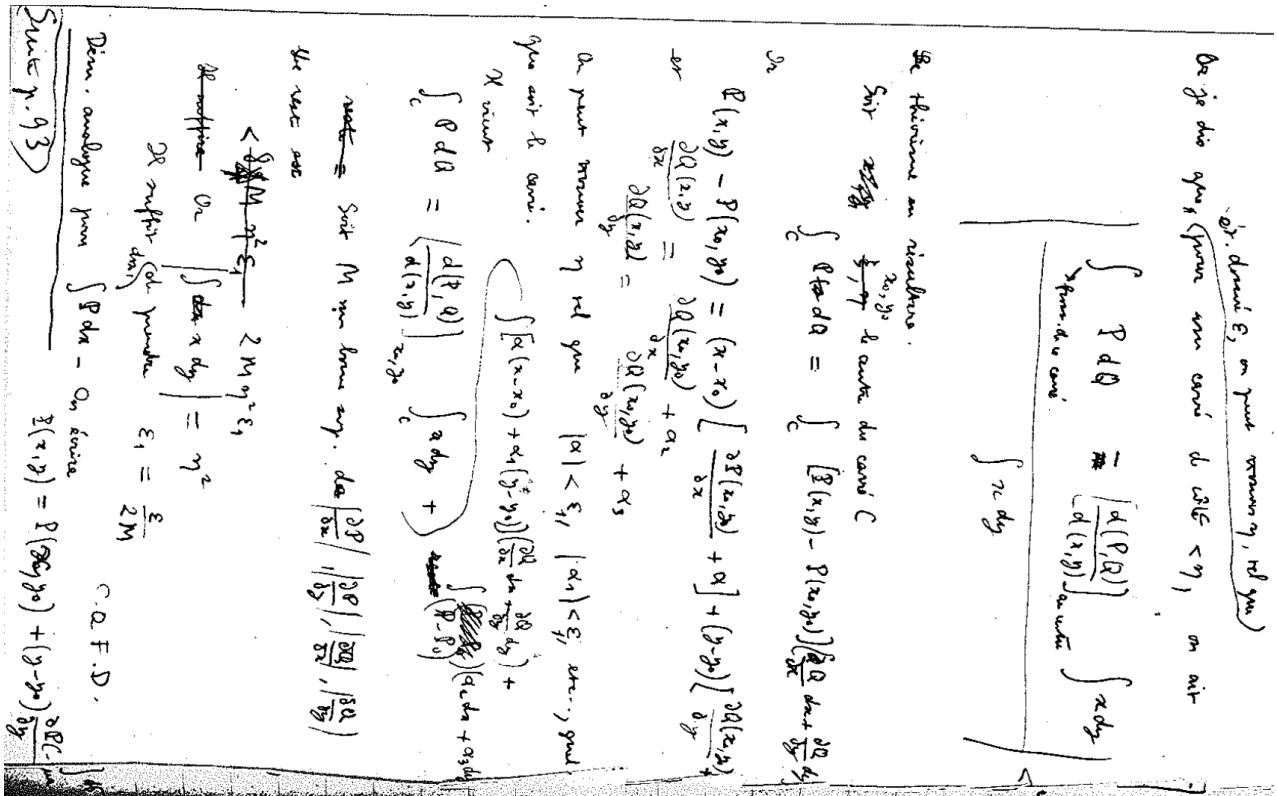 Or je dis que, (pour un carré de côté < η, on ait
ét. donné ε, on peut trouver η, tel que)
∫ P dQ = [d(P,Q)/d(x,y)] au centre ∫ x dy
front. de ce carré
∫ x dy
<
Le théorème en résultera.
Soit x₀, y₀ le centre du carré C
∫_C P dQ = ∫_C [P(x,y) - P(x₀,y₀)] [∂Q/∂x dx + ∂Q/∂y dy]
Or
P(x,y) - P(x₀,y₀) = (x-x₀) [∂P(x₀,y₀)/∂x + α] + (y-y₀) [∂Q(x₀,y₀)/∂y +
et ∂Q(x,y)/∂x = ∂Q(x₀,y₀)/∂x + α₂
∂Q(x,y)/∂y = ∂Q(x₀,y₀)/∂y + α₃
On peut trouver η tel que |α| < ε₁, |α₁| < ε₁, etc..., quel
que soit le carré.
Il vient
∫_C P dQ = [d(P,Q)/d(x,y)]_{x₀,y₀} ∫_C x dy +
∫ [α(x-x₀) + α₁(y-y₀)] (∂Q/∂x dx + ∂Q/∂y dy) +
∫ (P-P₀) (α₂ dx + α₃ dy
Soit M une borne sup. de |∂P/∂x|, |∂P/∂y|, |∂Q/∂x|, |∂Q/∂y|
Le reste est
< 8 M η² ε₁ 2 M η² ε₁
Il suffira Or |∫ x dy| = η²
Il suffit donc de prendre ε₁ = ε/2M
C.Q.F.D.
Dém. analogue pour ∫ P dx - On écrira
P(x,y) = P(x,y₀) + (y-y₀) ∂P(
(Suite p. 93)